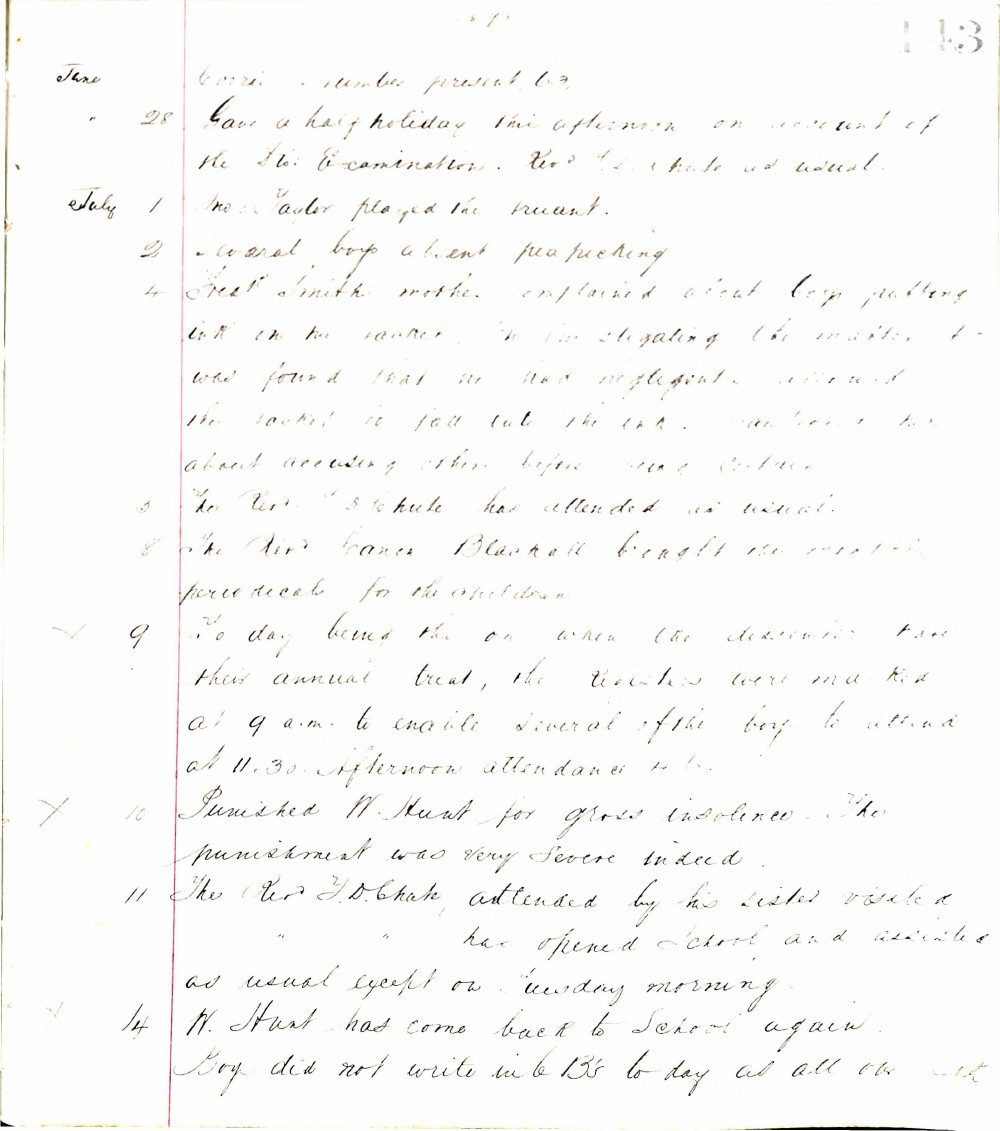 143
June number present 63
" 28 Gave a half holiday this afternoon on account of
the Examination. Revd as usual.
July 1 Jno. Taylor played the truant.
2 Several boys absent peapicking
4 Smith's mother complained about boys putting
ink on his jacket. On investigating the matter it
was found that he had negligently allowed
the jacket to fall into the ink.
about accusing others before being certain
5 The Revd T D Chute has attended as usual.
8 The Revd Canon Blackall brought the
periodicals for the children
X 9 To day being the on when the dissenters have
their annual treat, the Registers were marked
at 9 a.m. to enable several of the boys to attend
at 11.30. Afternoon attendance
X 10 Punished W. Hunt for gross insolence. The
punishment was very severe indeed.
11 The Revd T.D. Chute, attended by his sister visited
" " has opened School and assisted
as usual except on Tuesday morning.
X 14 W. Hunt has come back to School again.
Boys did not write in C. B's to day as all our